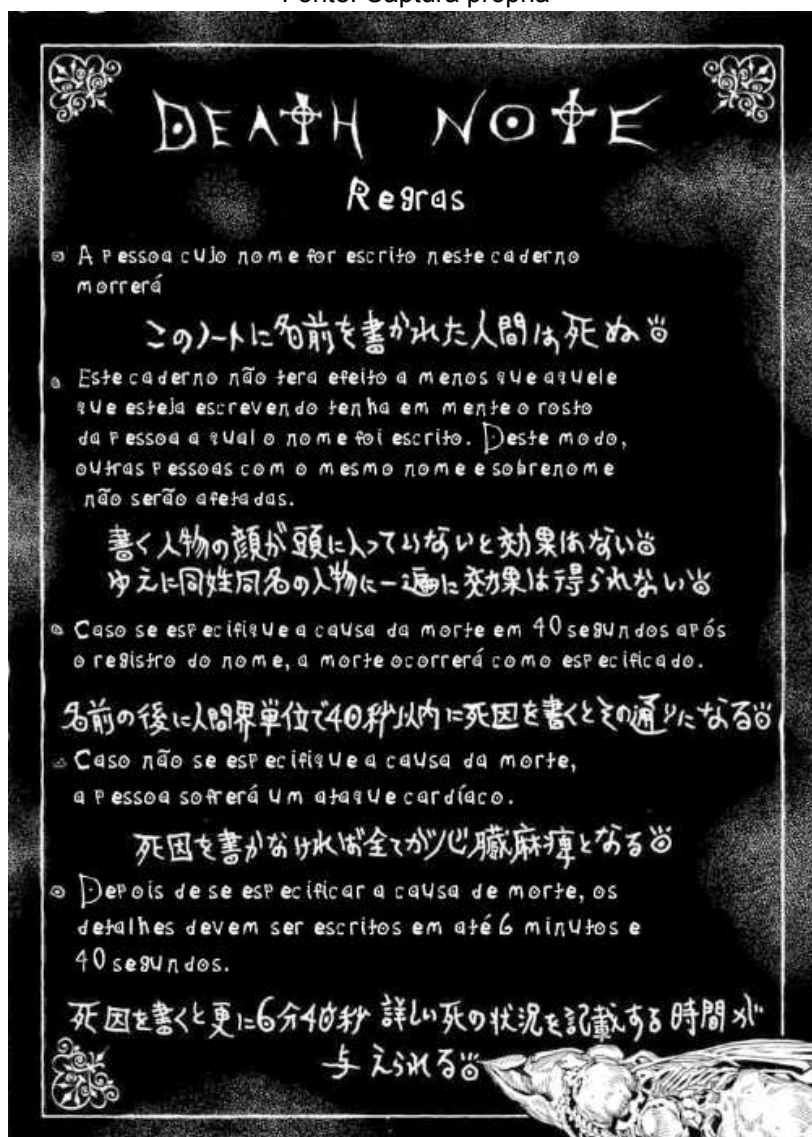 Fonte: Captura própria
DEATH NOTE
Regras
A Pessoa cujo nome for escrito neste caderno
morrerá
このノートに名前を書かれた人間は死ぬ
Este caderno não tera efeito a menos que aquele
que esteja escrevendo tenha em mente o rosto
da Pessoa a qual o nome foi escrito. Deste modo,
outras Pessoas com o mesmo nome e sobrenome
não serão afetadas.
書く人物の顔が頭に入っていないと効果はない
ゆえに同姓同名の人物に一遍に効果は得られない
Caso se especifique a causa da morte em 40 segundos após
o registro do nome, a morte ocorrerá como especificado.
名前の後に人間界単位で40秒以内に死因を書くとその通りになる
Caso não se especifique a causa da morte,
a Pessoa sofrerá um ataque cardíaco.
死因を書かなければ全てが心臓麻痺となる
Depois de se especificar a causa de morte, os
detalhes devem ser escritos em até 6 minutos e
40 segundos.
死因を書くと更に6分40秒 詳しい死の状況を記載する時間が
与えられる